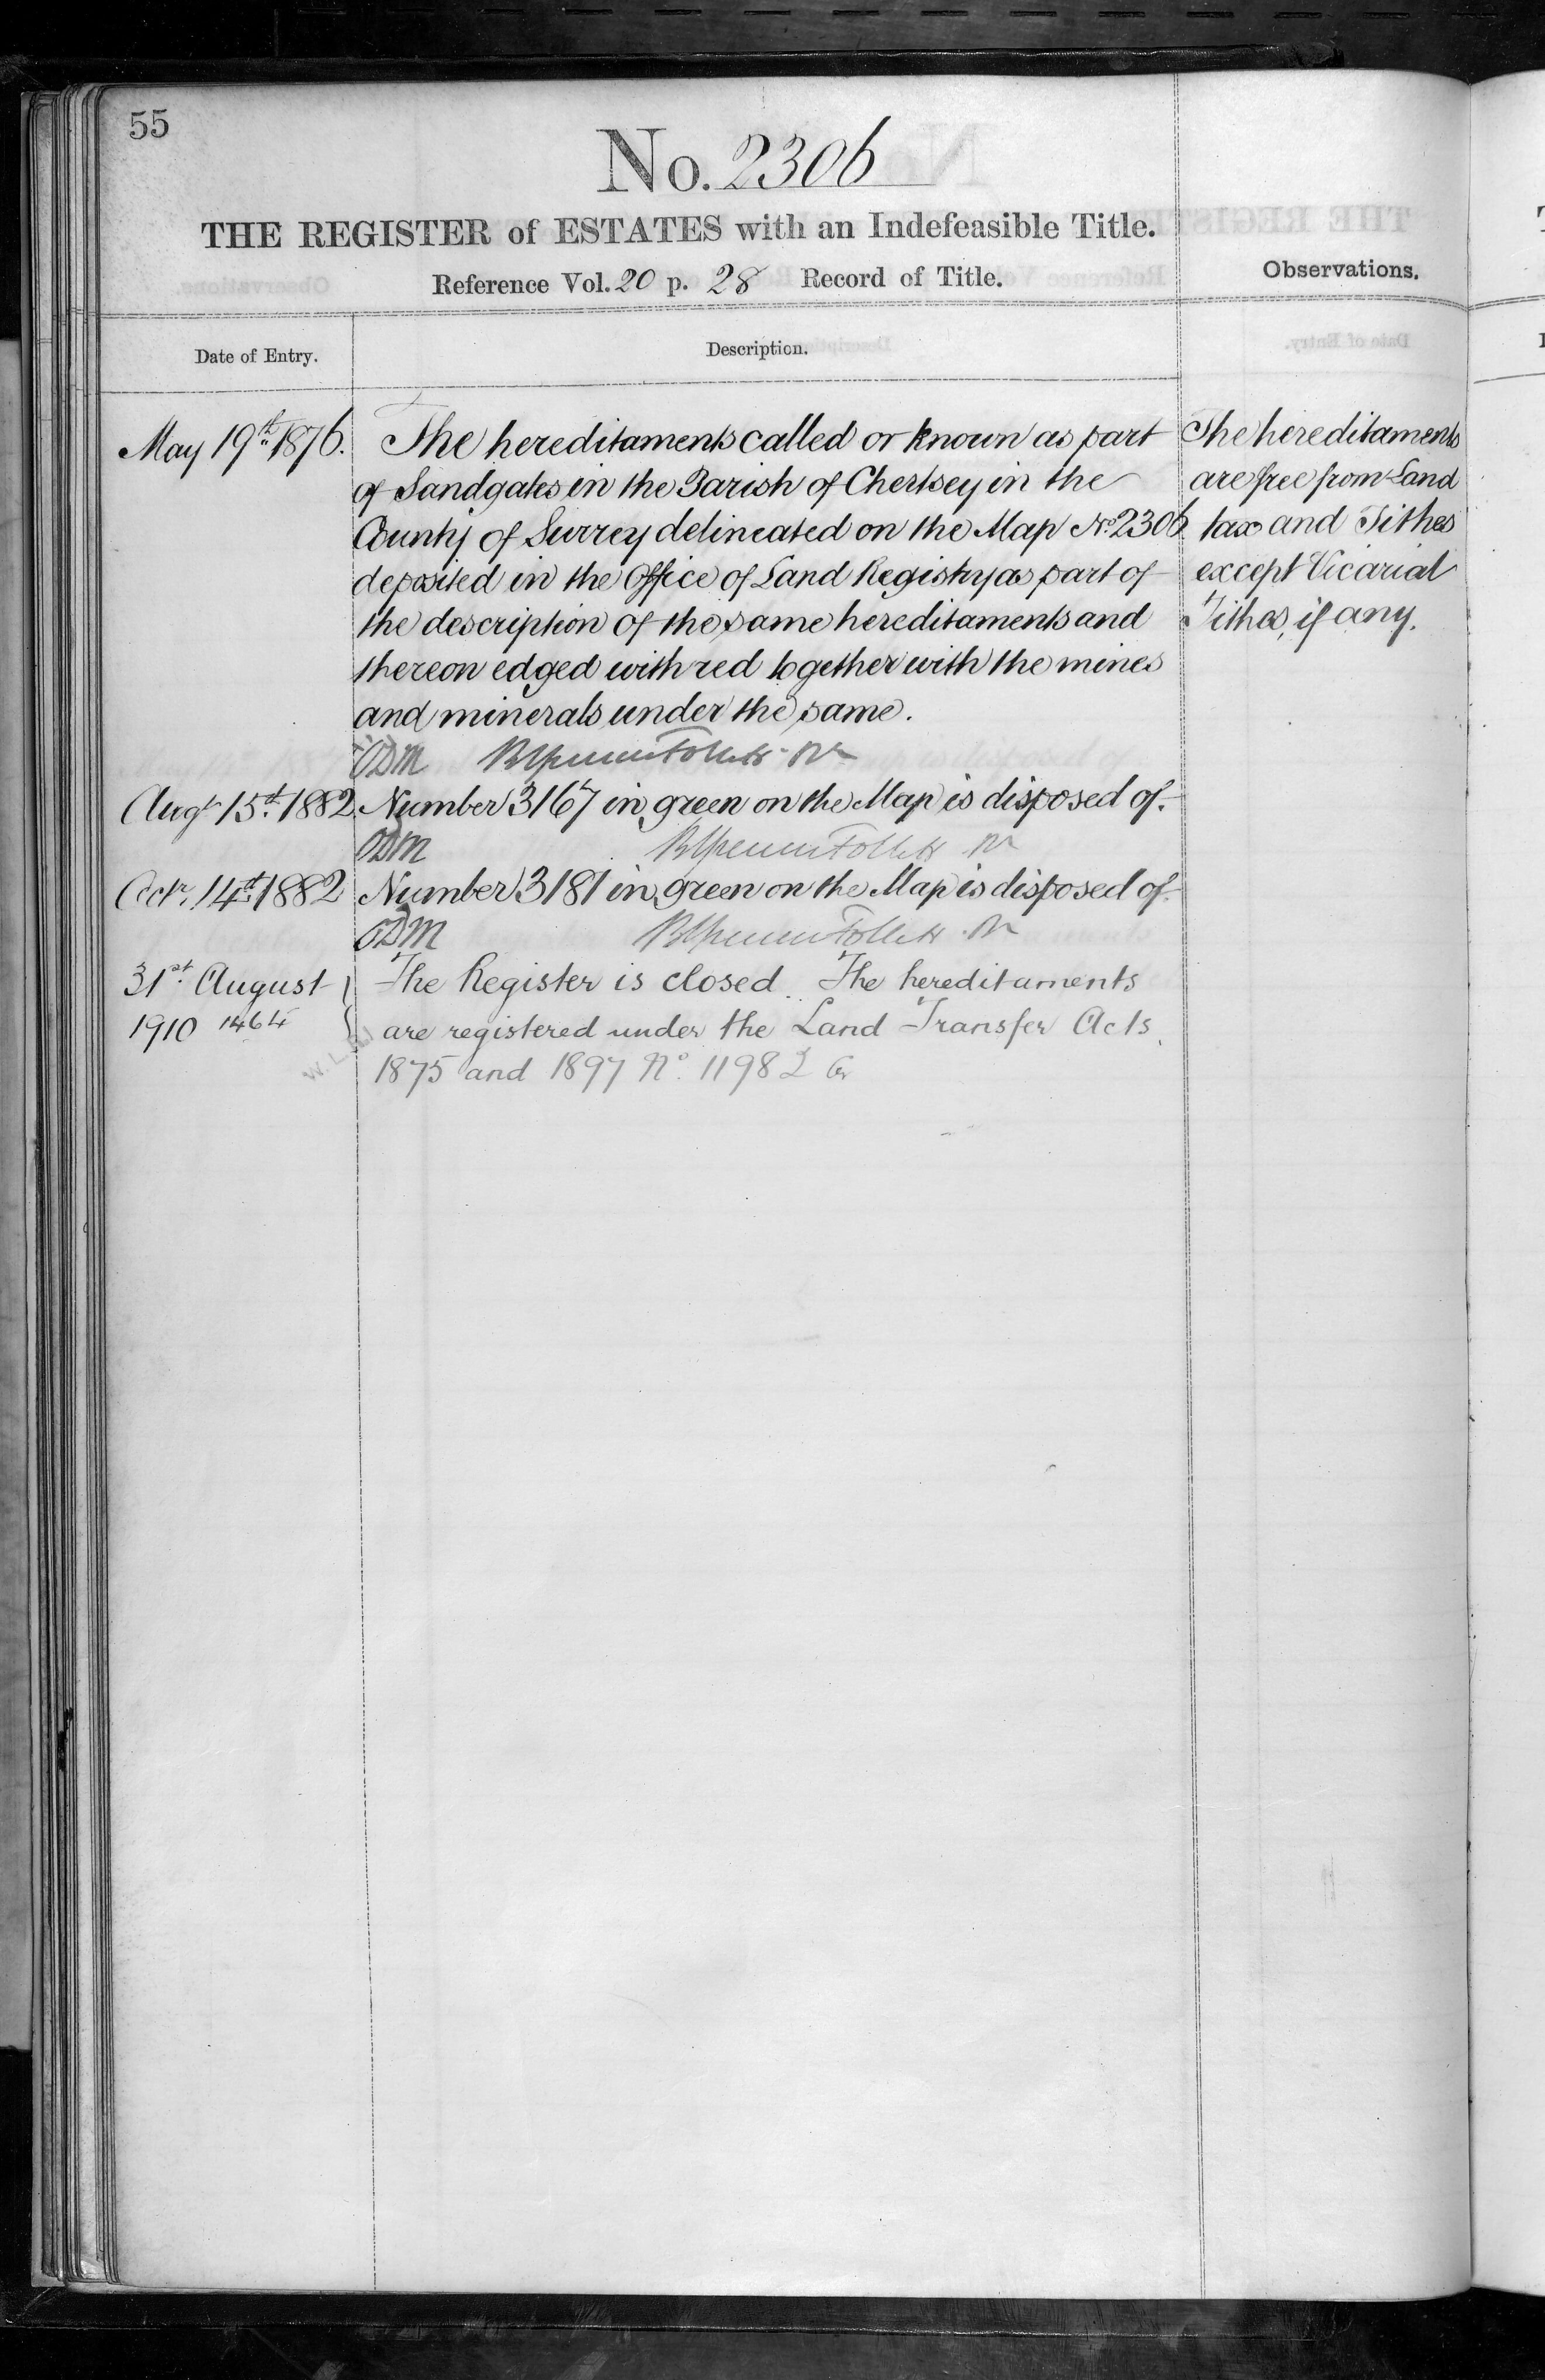 55
No. 2306
THE REGISTER of ESTATES with an Indefeasible Title.
Reference Vol. 20 p. 28 Record of Title.
Observations.
Date of Entry.
Description.
May 19th 1876.
The hereditaments called or known as part
of Sandgates in the Parish of Chertsey in the
County of Surrey delineated on the Map No. 2306
deposited in the Office of Land Registry as part of
the description of the same hereditaments and
thereon edged with red together with the mines
and minerals under the same.
The hereditaments
are free from Land
tax and Tithes
except Vicarial
Tithes, if any.
ODM
Augt 15th 1882.
Number 3167 in green on the Map is disposed of.
ODM
Octr. 14th 1882
Number 3181 in green on the Map is disposed of.
ODM
31st August
1910 1464
The Register is closed. The hereditaments
are registered under the Land Transfer Acts,
1875 and 1897 No. 11982